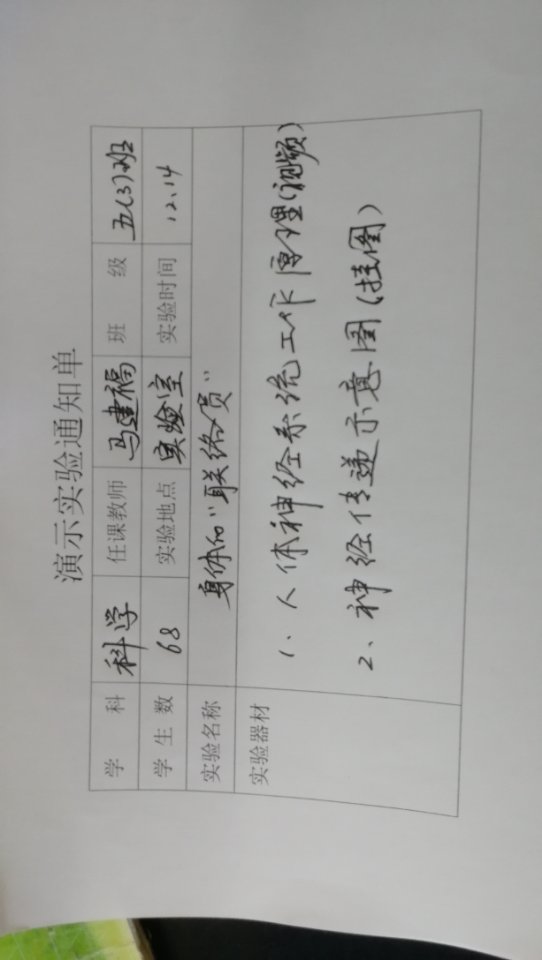 演示实验通知单
学 科 科学 任课教师 马建福 班 级 五(3)班
学 生 数 68 实验地点 实验室 实验时间 12.14
实验名称 身体的“联络员”
实验器材 1、人体神经系统工作原理(视频)
2、神经传递示意图(挂图)